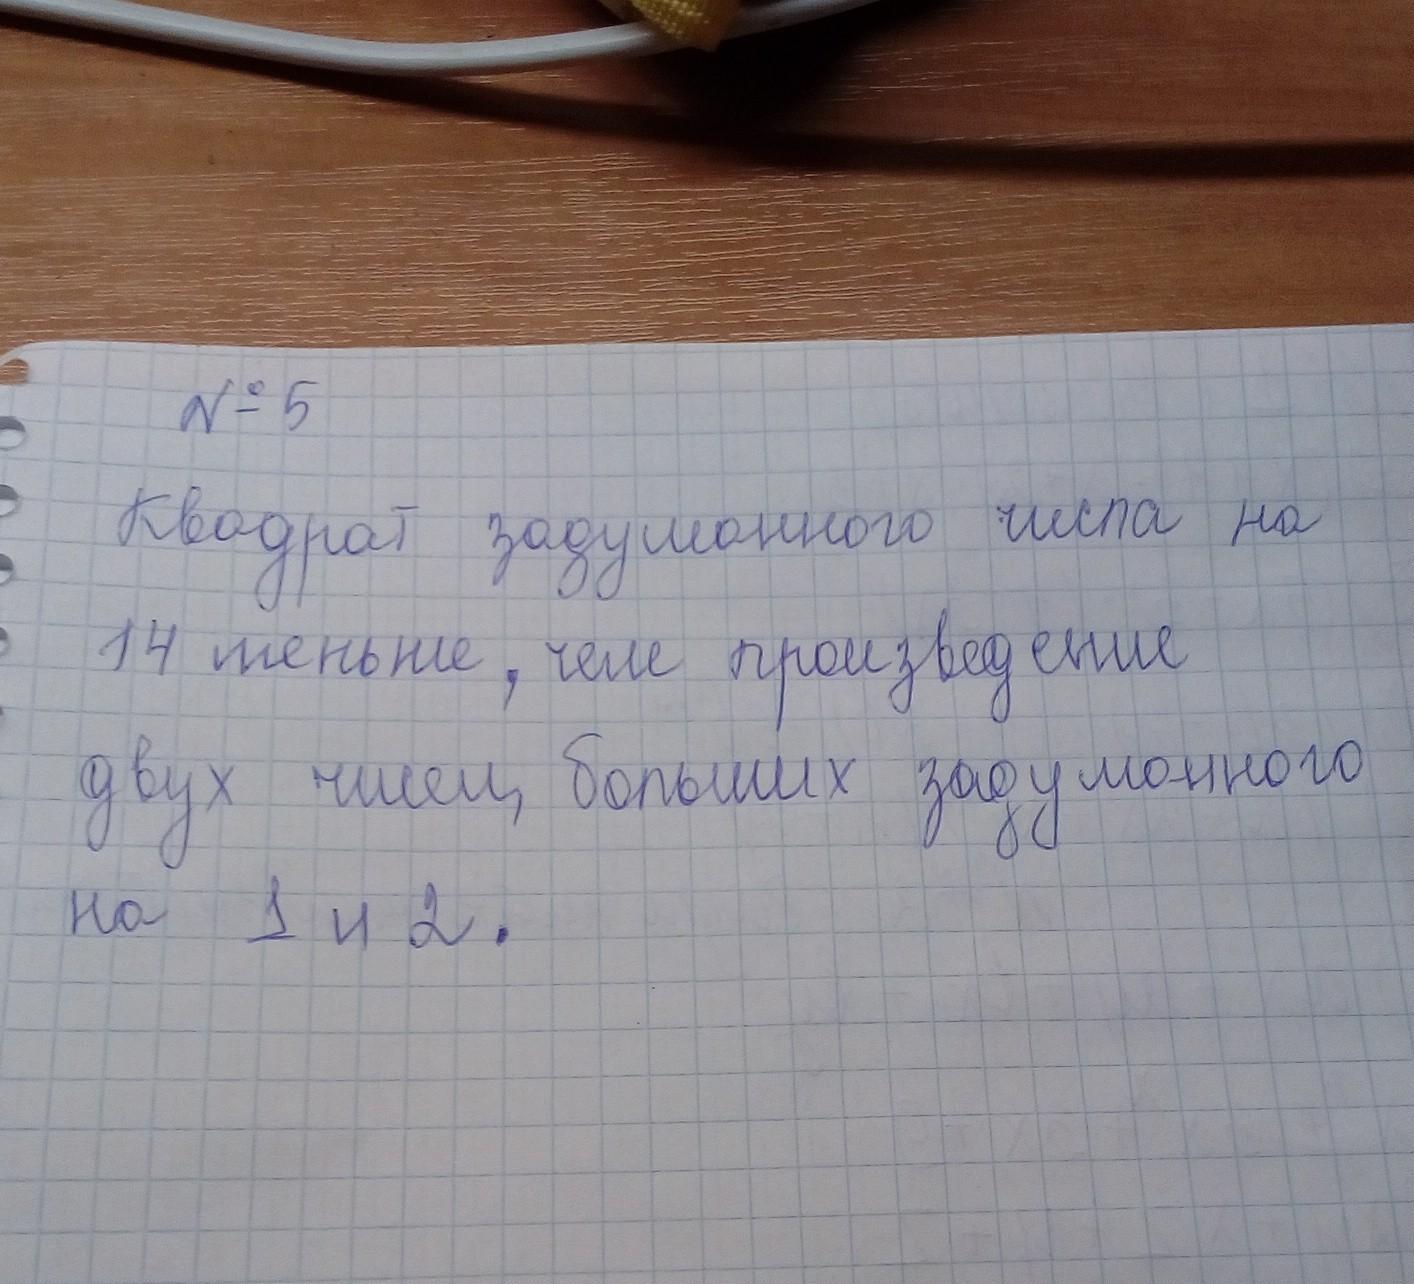 № 5
Квадрат задуманного числа на
14 меньше, чем произведение
двух чисел, больших задуманного
на 1 и 2.